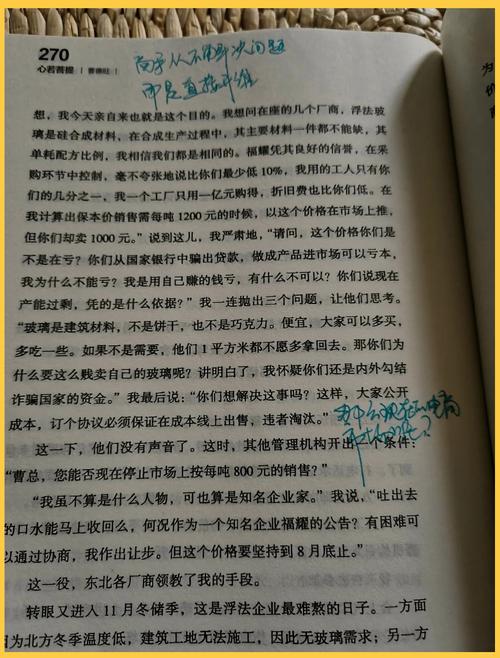 270
心若菩提 | 曹德旺 |
高手从不解决问题
而是直接升维
想，我今天亲自来也就是这个目的。我想问在座的几个厂商，浮法玻
璃是硅合成材料，在合成生产过程中，其主要材料一件都不能缺，其
单耗配方比例，我相信我们都是相同的。福耀凭其良好的信誉，在采
购环节中控制，毫不夸张地说比你们最少低10%，我用的工人只有你
们的几分之一，我一个工厂只用一亿元购得，折旧费也比你们低。在
我计算出保本价销售需每吨1200元的时候，以这个价格在市场上推，
但你们却卖1000元。”说到这儿，我严肃地，“请问，这个价格你们是
不是在亏？你们从国家银行中骗出贷款，做成产品进市场可以亏本，
我为什么不能亏？我是用自己赚的钱亏，有什么不可以？你们说现在
产能过剩，凭的是什么依据？”我一连抛出三个问题，让他们思考。
“玻璃是建筑材料，不是饼干，也不是巧克力。便宜，大家可以多买，
多吃一些。如果不是需要，他们1平方米都不愿多拿回去。那你们为
什么要这么贱卖自己的玻璃呢？讲明白了，我怀疑你们还是内外勾结
诈骗国家的资金。”我最后说：“你们想解决这事吗？这样，大家公开
成本，订个协议必须保证在成本线上出售，违者淘汰。”
这一下，他们没有声音了。这时，其他管理机构开出一个条件：
“曹总，您能否现在停止市场上按每吨800元的销售？”
“我虽不算是什么人物，可也算是知名企业家。”我说，“吐出去
的口水能马上收回么，何况作为一个知名企业福耀的公告？有困难可
以通过协商，我作出让步。但这个价格要坚持到8月底止。”
这一役，东北各厂商领教了我的手段。
转眼又进入11月冬储季，这是浮法企业最难熬的日子。一方面
因为北方冬季温度低，建筑工地无法施工，因此无玻璃需求；另一方